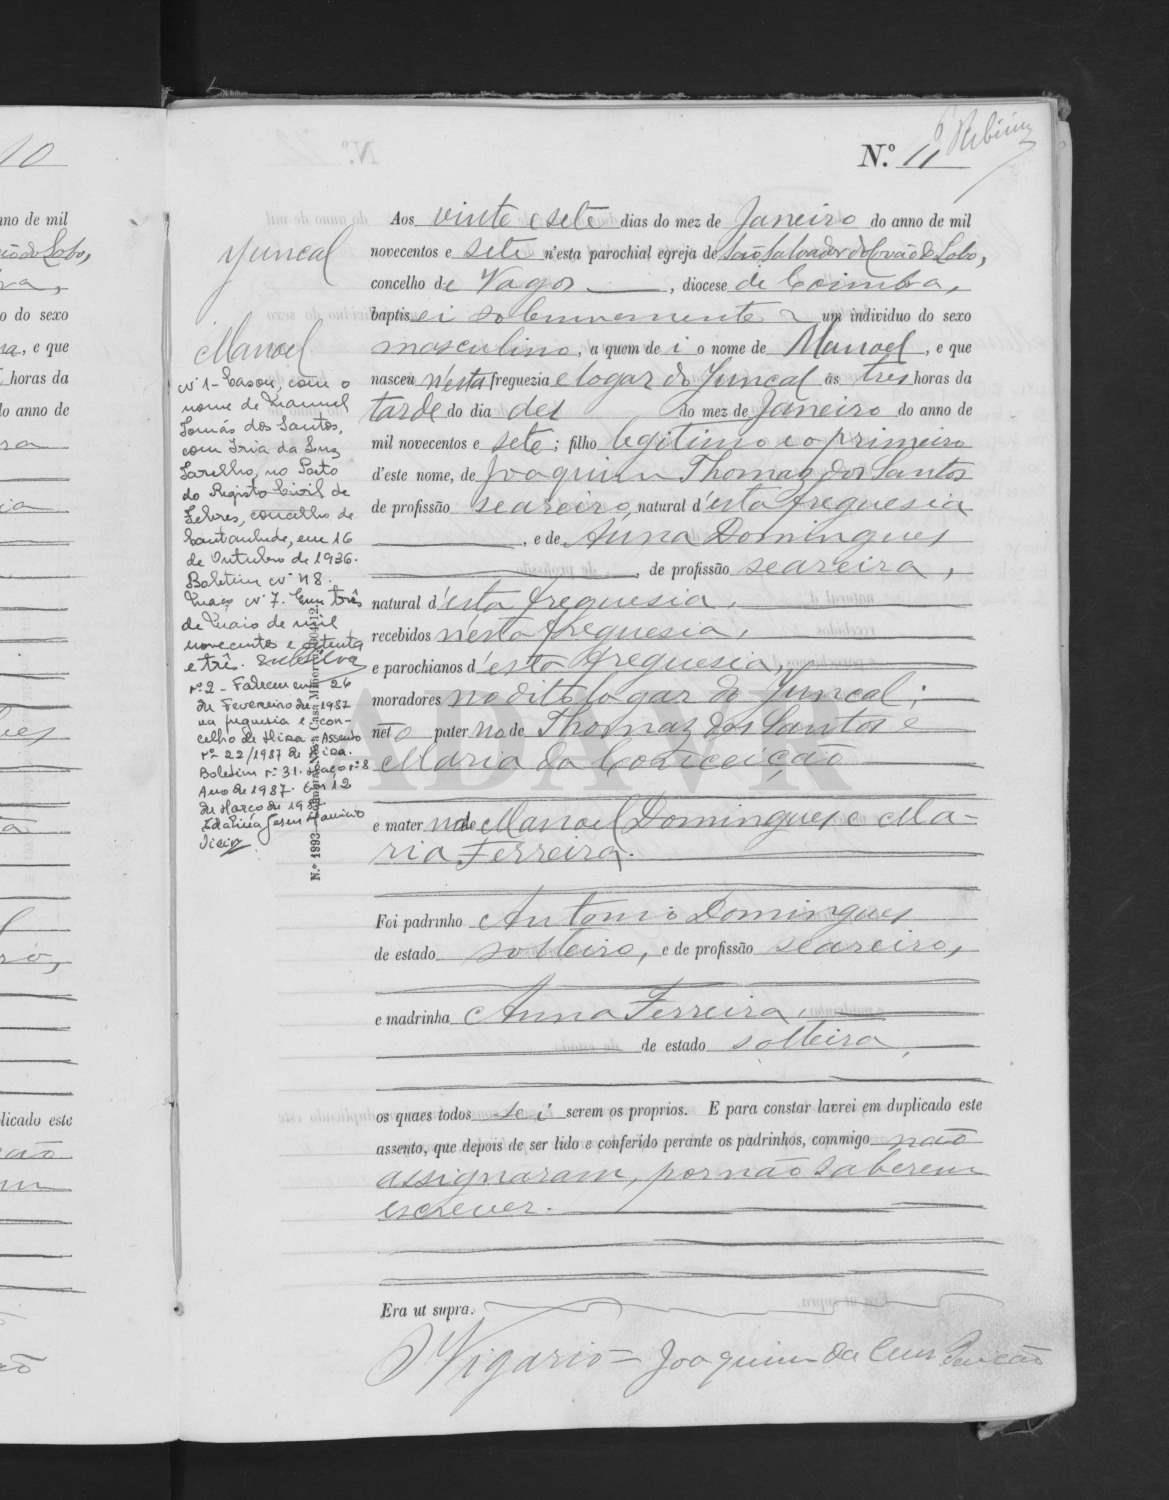 10
N.º 11
Aos vinte e sete dias do mez de Janeiro do anno de mil
novecentos e sete n'esta parochial egreja de São Salvador do Covão do Lobo,
concelho de Vagos, diocese de Coimbra,
baptisei solemnemente um individuo do sexo
masculino, a quem dei o nome de Manoel, e que
nasceu n'esta freguezia e logar do Juncal ás tres horas da
tarde do dia des do mez de Janeiro do anno de
mil novecentos e sete; filho legitimo e o primeiro
d'este nome, de Joaquim Thomaz dos Santos
de profissão seareiro, natural d'esta freguesia
, e de Anna Domingues
, de profissão seareira,
natural d'esta freguesia,
recebidos n'esta freguesia,
e parochianos d'esta freguesia,
moradores no dito logar do Juncal;
neto paterno de Thomaz dos Santos e
Maria da Conceição
e materno de Manoel Domingues e Ma-
ria Ferreira.
Foi padrinho Antonio Domingues
de estado solteiro, e de profissão seareiro,
e madrinha Anna Ferreira,
de estado solteira,
os quaes todos sei serem os proprios. E para constar lavrei em duplicado este
assento, que depois de ser lido e conferido perante os padrinhos, commigo não
assignaram, por não saberem
escrever.
Era ut supra.
O Vigario = Joaquim da Cruz
Juncal
Manoel
Nº 1 - Casou, com o
nome de Manuel
Tomás dos Santos,
com Iria da Luz
Sarelho, no Posto
do Registo Civil de
Febres, concelho de
Cantanhede, em 16
de Outubro de 1936.
Boletim nº 48.
Maço nº 7. Em três
de Maio de mil
novecentos e setenta
e três.
nº 2 - Faleceu em 26
de Fevereiro de 1987
na freguesia e con-
celho de Mira - Assento
nº 22/1987 de Mira.
Boletim nº 31. Maço nº 8
Ano de 1987. Em 12
de Março de 1987
N.º 1993
ADAVR